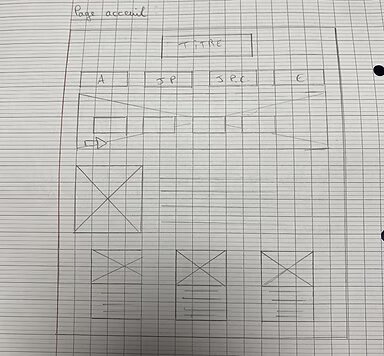 Page acceuil
TITRE
A JP JPC E